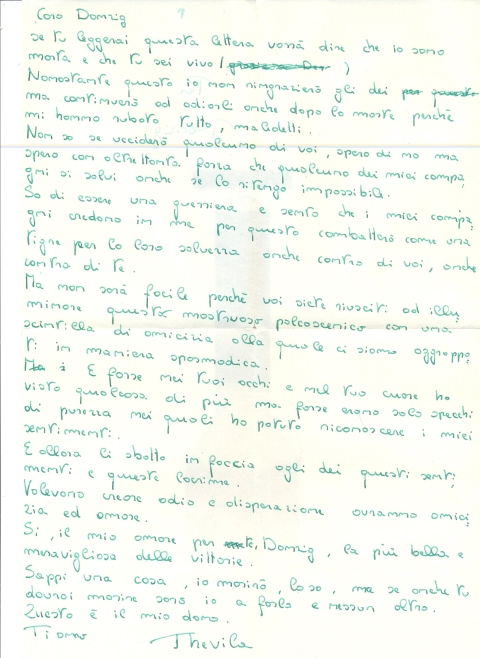 Caro Domzig
se tu leggerai questa lettera vorrà dire che io sono
morta e che tu sei vivo ( )
Nonostante questo io non ringrazierò gli dei per questo
ma continuerò ad odiarli anche dopo la morte perché
mi hanno rubato tutto, maledetti.
Non so se ucciderò qualcuno di voi, spero di no ma
spero con altrettanta forza che qualcuno dei miei compa
gni si salvi anche se lo ritengo impossibile.
So di essere una guerriera e sento che i miei compa
gni credono in me per questo combatterò come una
tigre per la loro salvezza anche contro di voi, anche
contro di te.
Ma non sarà facile perché voi siete riusciti ad illu
minare questo mostruoso palcoscenico con una
scintilla di amicizia alla quale ci siamo aggrappa
ti in maniera spasmodica.
E forse nei tuoi occhi e nel tuo cuore ho
visto qualcosa di più ma forse erano solo specchi
di purezza nei quali ho potuto riconoscere i miei
sentimenti.
E allora li sbatto in faccia agli dei questi senti
menti e queste lacrime.
Volevano creare odio e disperazione avranno amici
zia ed amore.
Si, il mio amore per te, Domzig, la più bella e
meravigliosa delle vittorie.
Sappi una cosa, io morirò, lo so, ma se anche tu
dovrai morire sarò io a farlo e nessun altro.
Questo è il mio dono.
Ti amo Thevila